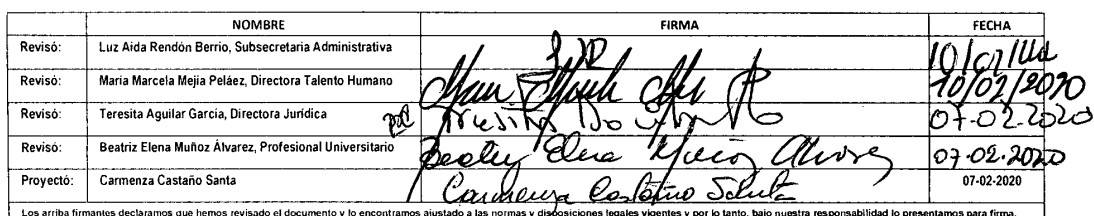 NOMBRE FIRMA FECHA
Revisó: Luz Aida Rendón Berrio, Subsecretaria Administrativa
Revisó: María Marcela Mejía Peláez, Directora Talento Humano 10/02/2020
Revisó: Teresita Aguilar García, Directora Jurídica Teresita 07-02-2020
Revisó: Beatriz Elena Muñoz Álvarez, Profesional Universitario Beatriz Elena Muñoz Alvarez 07.02.2020
Proyectó: Carmenza Castaño Santa Carmenza Castaño Santa 07-02-2020
Los arriba firmantes declaramos que hemos revisado el documento y lo encontramos ajustado a las normas y disposiciones legales vigentes y por lo tanto, bajo nuestra responsabilidad lo presentamos para firma.